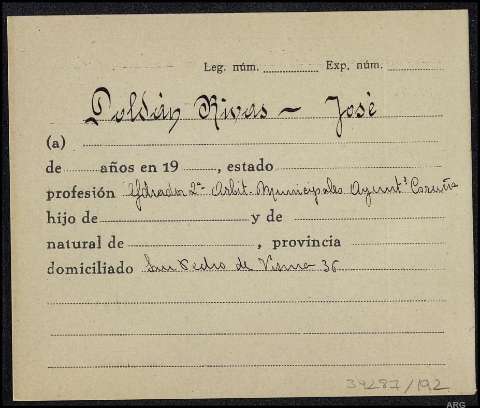 Leg. núm. Exp. núm.
Doldán Rivas — José
(a)
de años en 19 , estado
profesión 2ª Arbit. Municipales Ayuntº Coruña
hijo de y de
natural de , provincia
domiciliado San Pedro de Visma 36
39287/192
ARG